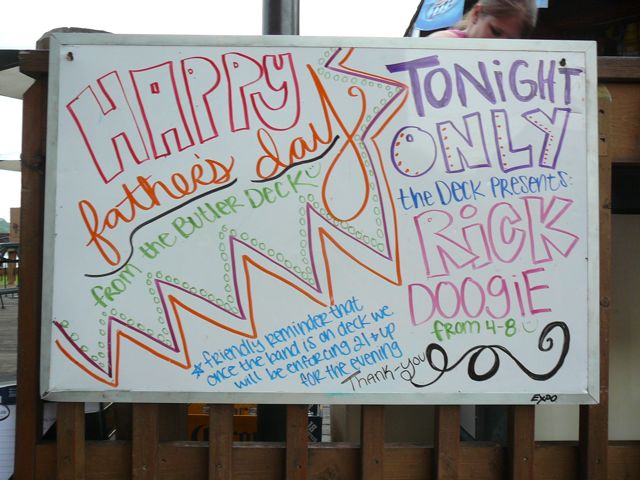 HAPPY
father's day
from the Butler Deck
TONiGHT
ONLY
the Deck Presents:
RiCK
DOOGiE
from 4-8
*friendly reminder that
once the band is on deck we
will be enforcing 21 & up
for the evening
Thank-you
EXPO